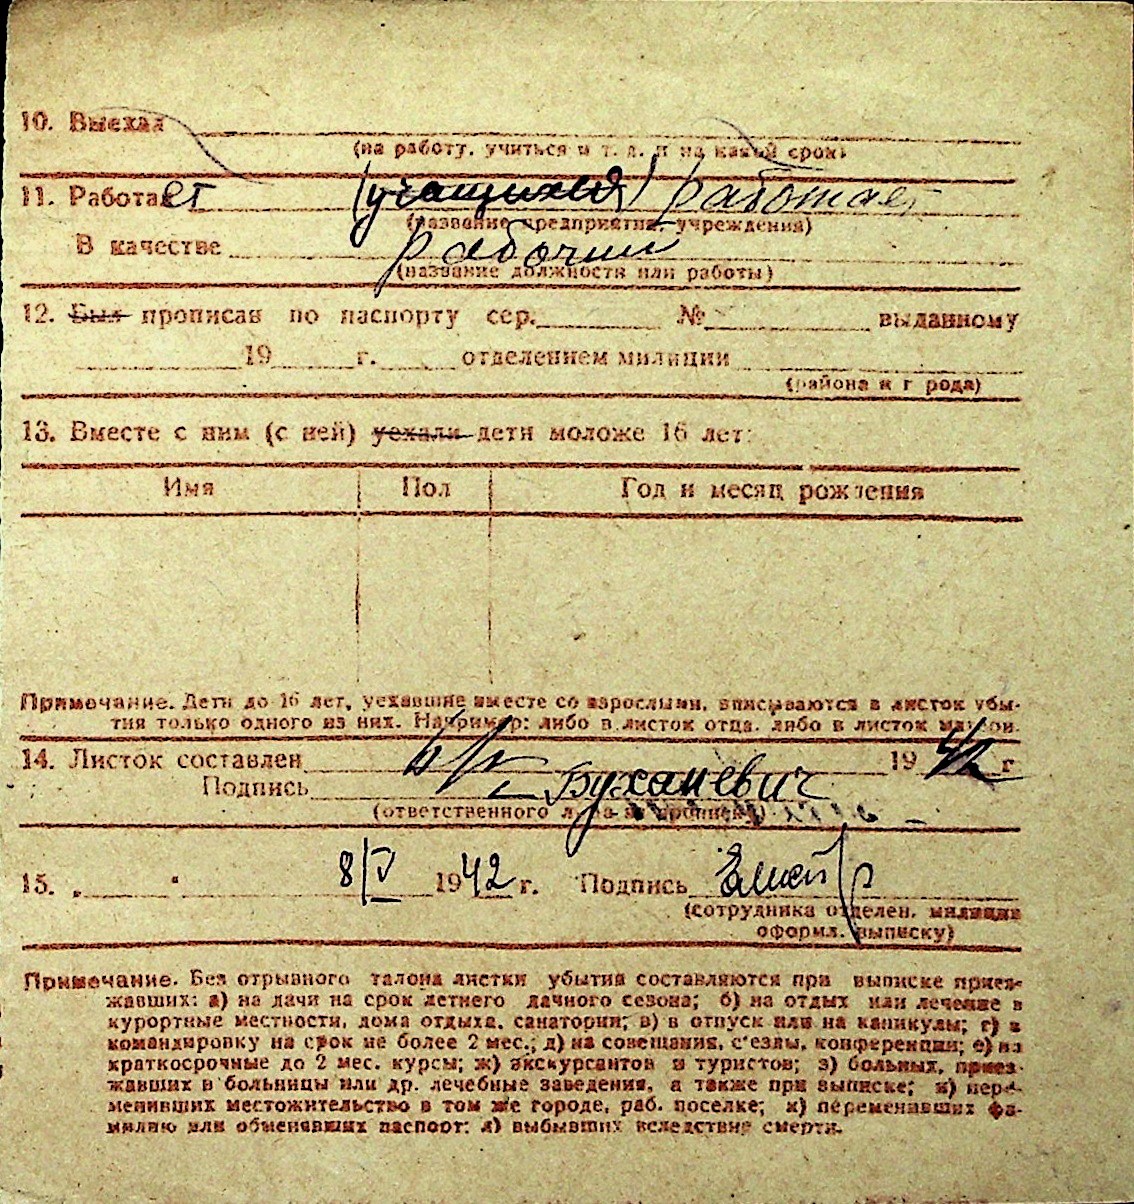 10. Выехал
(на работу, учиться и т. д. и на какой срок)
11. Работает (учащихся) работает
(название предприятия, учреждения)
В качестве рабочий
(название должности или работы)
12. Был прописан по паспорту сер. № выданному
19 г. отделением милиции
(района и города)
13. Вместе с ним (с ней) уехали дети моложе 16 лет:
Имя Пол Год и месяц рождения
Примечание. Дети до 16 лет, уехавшие вместе со взрослыми, вписываются в листок убы-
тия только одного из них. Например: либо в листок отца, либо в листок матери.
14. Листок составлен 1942 г
Подпись Буханевич
(ответственного лица за прописку)
15. „ “ 8/V 1942 г. Подпись
(сотрудника отделен. милиции
оформл. выписку)
Примечание. Без отрывного талона листки убытия составляются при выписке приез-
жавших: а) на дачи на срок летнего дачного сезона; б) на отдых или лечение в
курортные местности, дома отдыха, санатории; в) в отпуск или на каникулы; г) в
командировку на срок не более 2 мес.; д) на совещания, с'езды, конференции; е) на
краткосрочные до 2 мес. курсы; ж) экскурсантов и туристов; з) больных, приез-
жавших в больницы или др. лечебные заведения, а также при выписке; и) пере-
менивших местожительство в том же городе, раб. поселке; к) переменивших фа-
милию или обменявших паспорт; л) выбывших вследствие смерти.